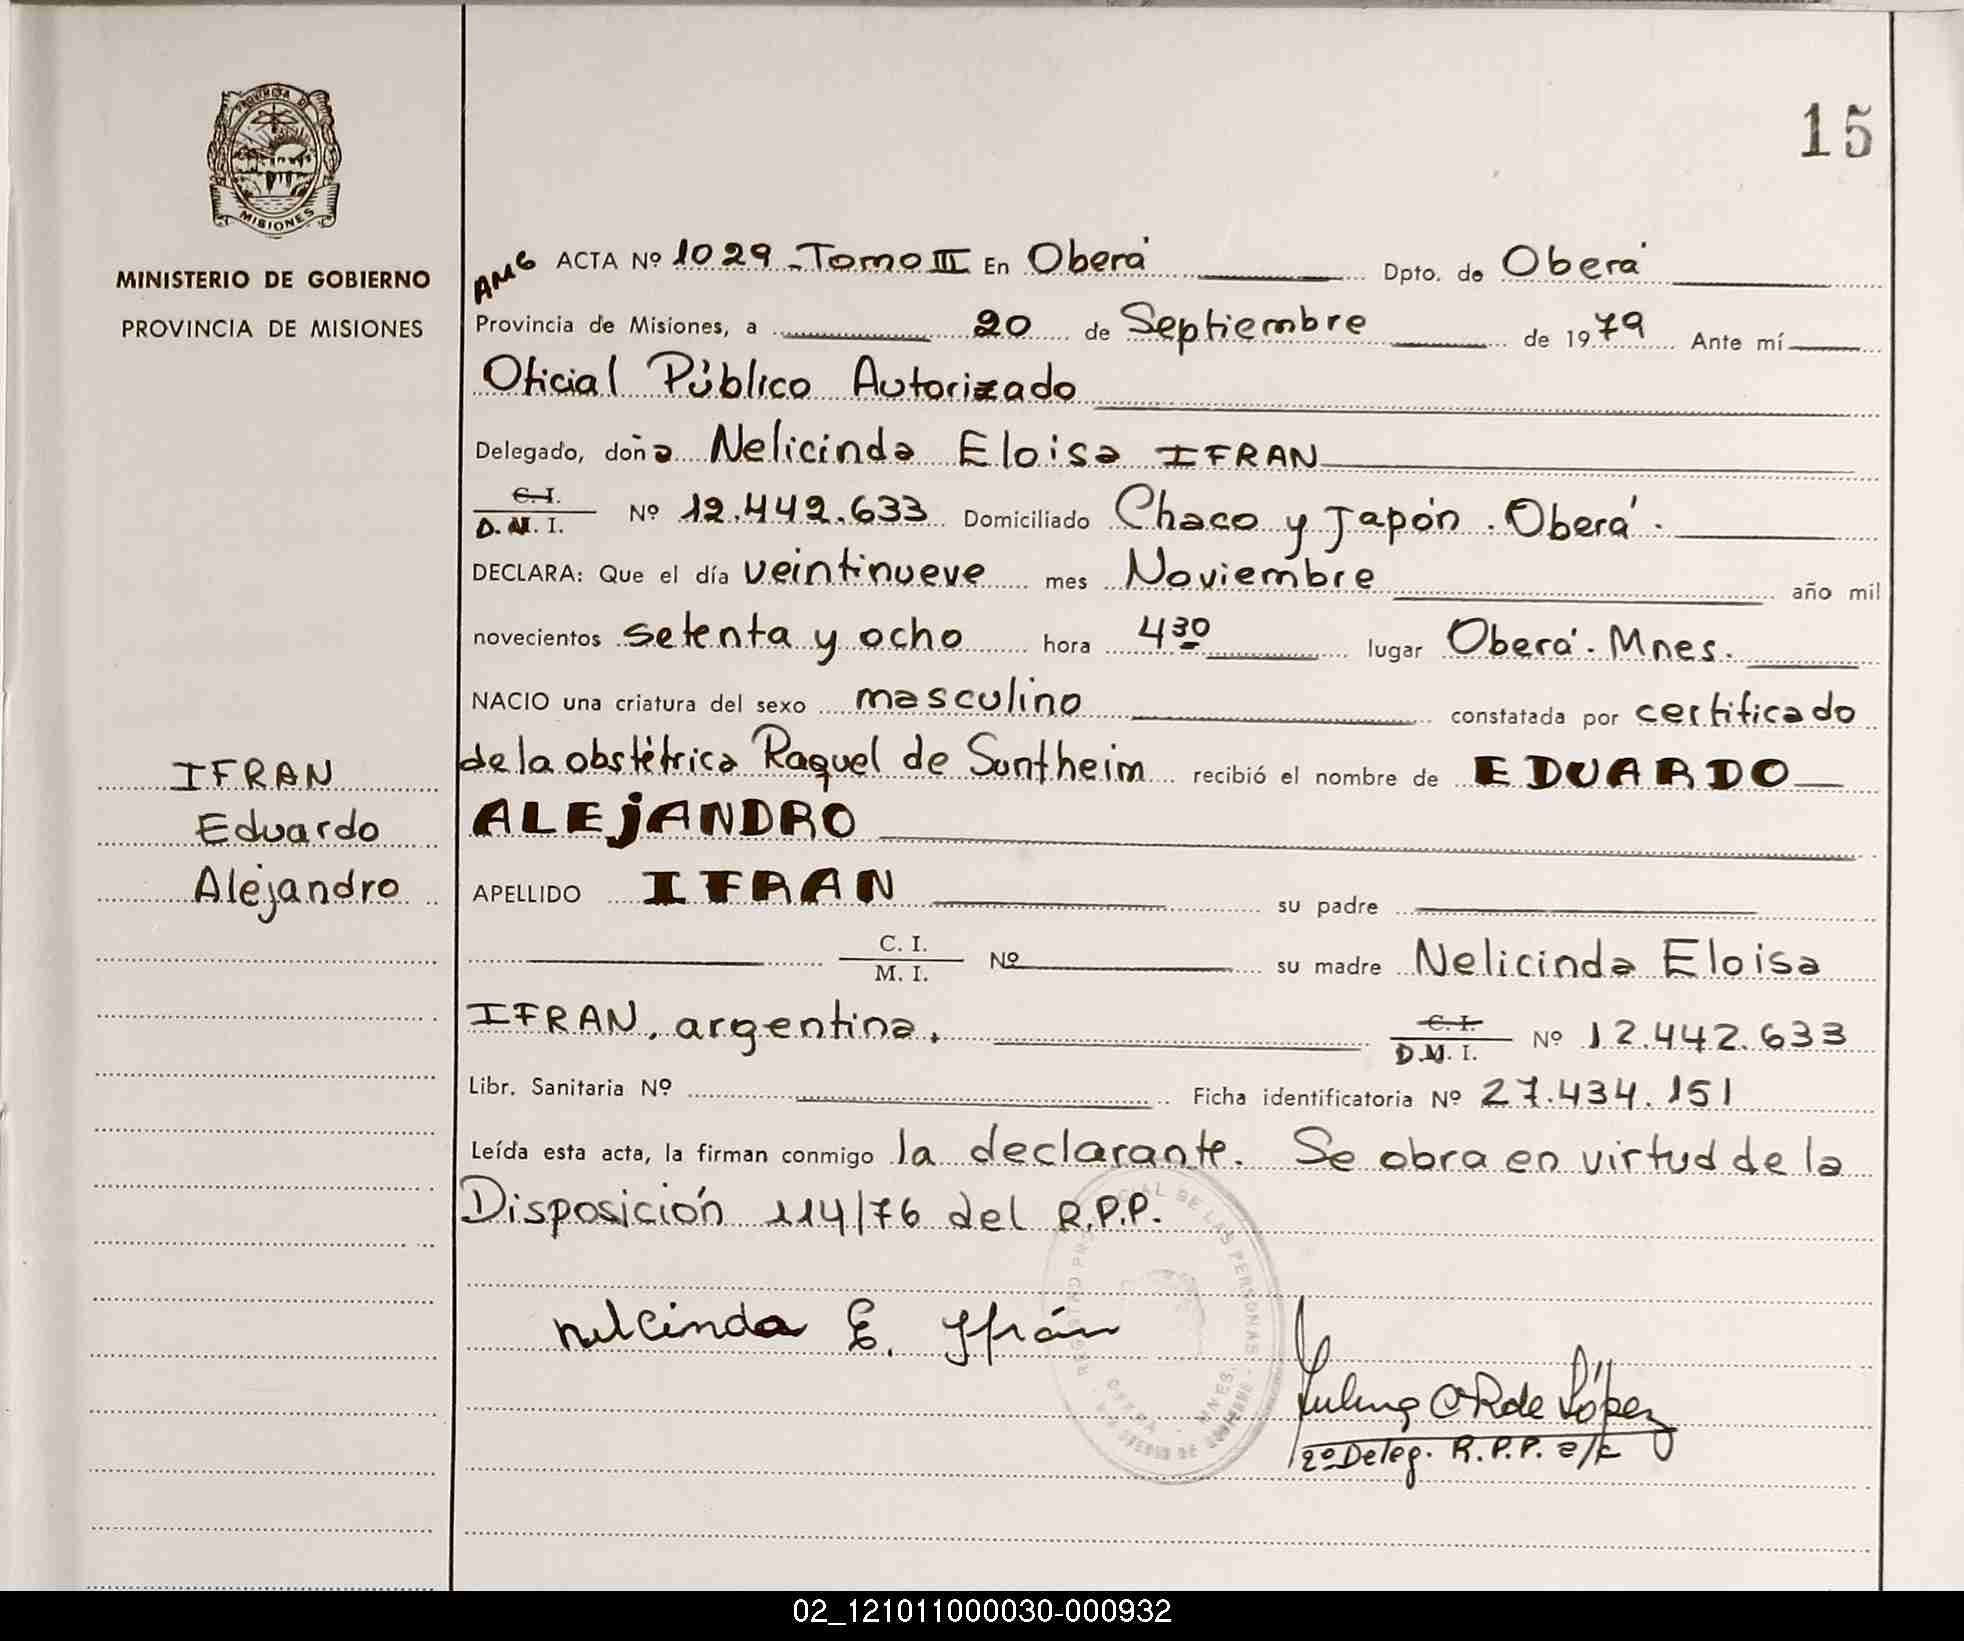 PROVINCIA DE
MISIONES
MINISTERIO DE GOBIERNO
PROVINCIA DE MISIONES
15
AMG ACTA Nº 1029 - Tomo III En Oberá Dpto. de Oberá
Provincia de Misiones, a 20 de Septiembre de 1979 Ante mí
Oficial Público Autorizado
Delegado, doña Nelicinda Eloisa IFRAN
C.I.
D.N.I. Nº 12.442.633 Domiciliado Chaco y Japón . Oberá .
DECLARA: Que el día veintinueve mes Noviembre año mil
novecientos setenta y ocho hora 4 30 lugar Oberá . Mnes.
NACIO una criatura del sexo masculino constatada por certificado
de la obstétrica Raquel de Suntheim recibió el nombre de EDUARDO
ALEJANDRO
IFRAN
Eduardo
Alejandro
APELLIDO IFRAN su padre
C. I.
M. I. Nº su madre Nelicinda Eloisa
IFRAN, argentina, C. I.
D.N.I. Nº 12.442.633
Libr. Sanitaria Nº Ficha identificatoria Nº 27.434.151
Leída esta acta, la firman conmigo la declarante. Se obra en virtud de la
Disposición 114/76 del R.P.P.
REGISTRO PROVINCIAL DE LAS PERSONAS
OBERA - MNES.
Nelcinda E. Ifrán
de López
2º Deleg. R.P.P. a/c
02_121011000030-000932